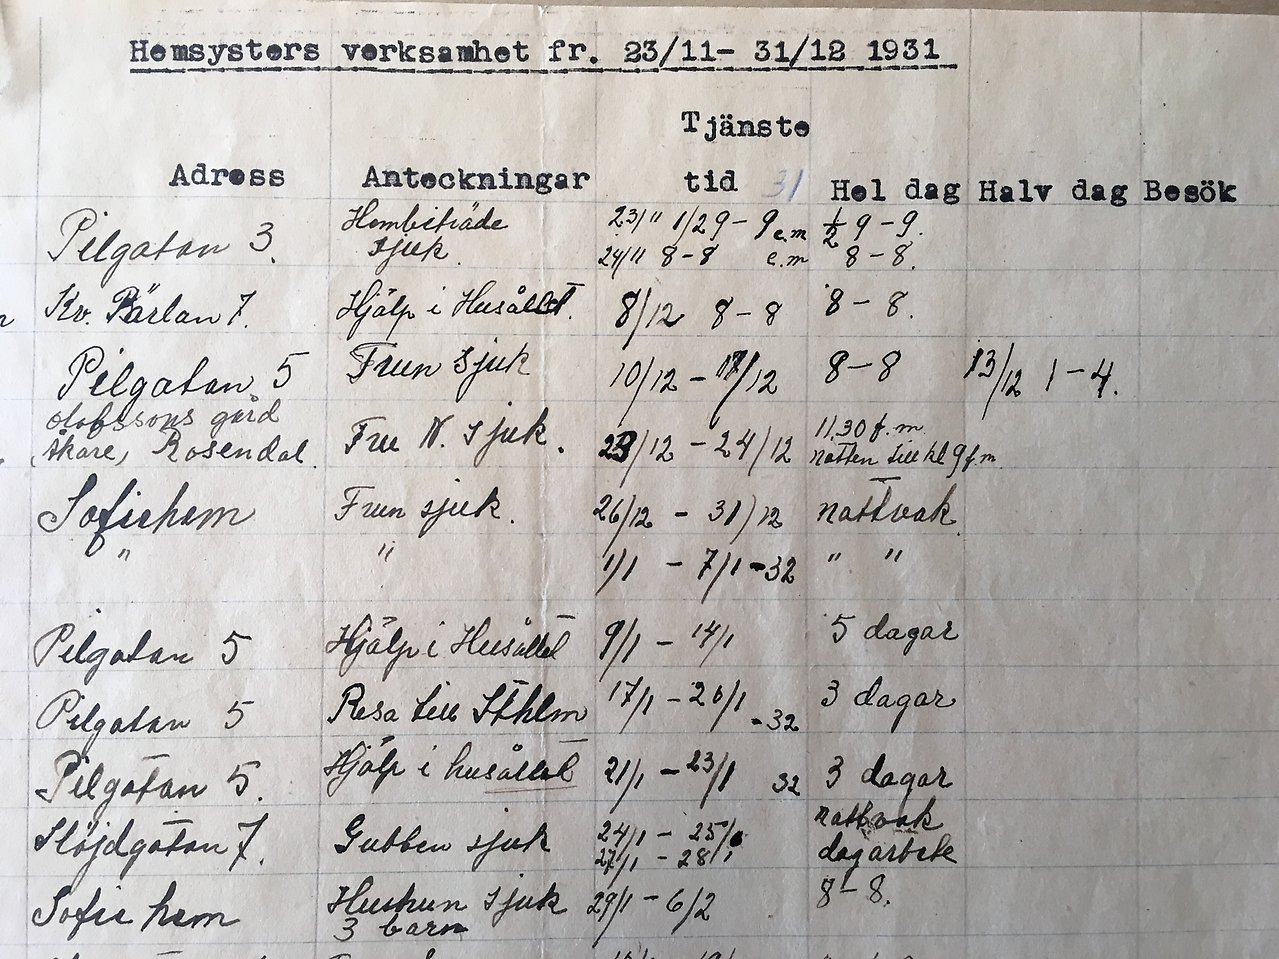 Hemsysters verksamhet fr. 23/11- 31/12 1931
Tjänste
Adress Anteckningar tid 31 Hel dag Halv dag Besök
Pilgatan 3. Hembiträde sjuk. 23/11 1/29 - 9 e.m ½ 9 - 9.
24/11 8-8 e.m 8 - 8.
Kv. Pärlan 7. Hjälp i Husållet. 8/12 8 - 8 8 - 8.
Pilgatan 5 Frun sjuk 10/12 - 17/12 8 - 8 13/12 1 - 4.
Olofssons gård
åkare, Rosendal. Fru N. sjuk. 23/12 - 24/12 11,30 f.m.
natten till kl 9 f.m.
Sofiehem Frun sjuk. 26/12 - 31/12 nattvak
" " 1/1 - 7/1 -32 " "
Pilgatan 5 Hjälp i Husållet 9/1 - 14/1 5 dagar
Pilgatan 5 Resa till Sthlm 17/1 - 20/1 -32 3 dagar
Pilgatan 5. Hjälp i husållet 21/1 - 23/1 32 3 dagar
Slöjdgatan 7. Gubben sjuk 24/1 - 25/1 nattvak
27/1 - 28/1 dagarbete
Sofiehem Hustrun sjuk 29/1 - 6/2 8 - 8.
3 barn